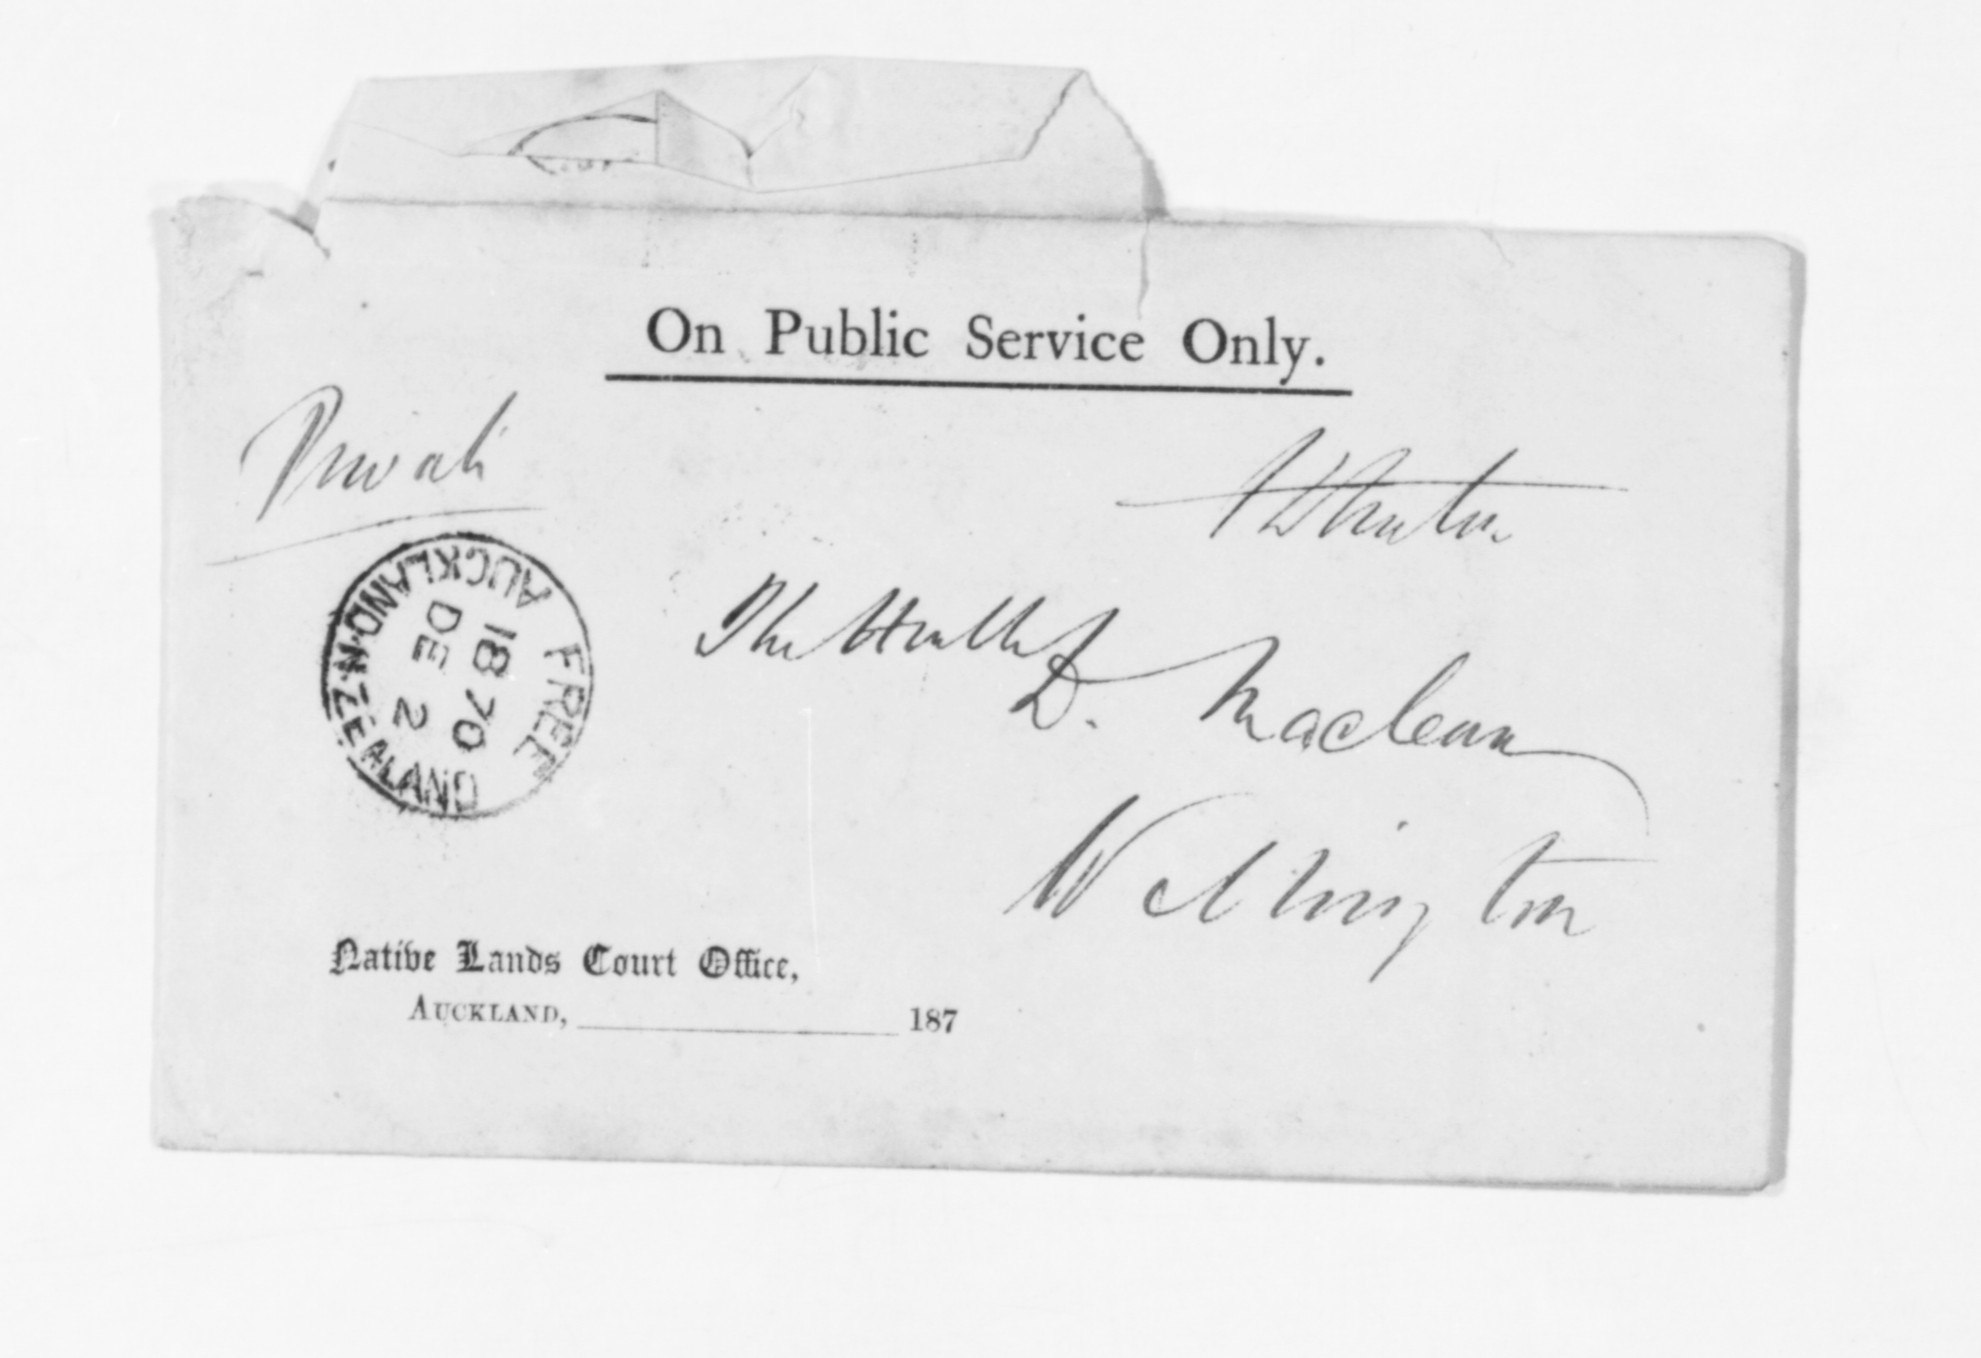 On Public Service Only.
Private
FDFenton
The Honble
D. Maclean
Wellington
FREE
AUCKLAND·N·ZEALAND
1870
DE 2
Native Lands Court Office,
AUCKLAND, 187